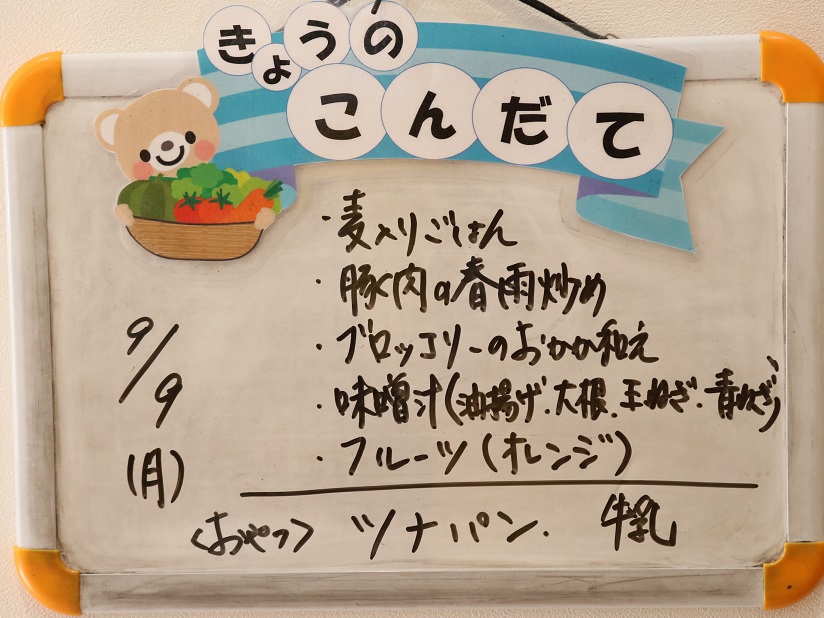 きょうの
こんだて
・麦入りごはん
・豚肉の春雨炒め
・ブロッコリーのおかか和え
・味噌汁(油揚げ.大根.玉ねぎ.青ねぎ)
・フルーツ(オレンジ)
9/9
(月)
<おやつ> ツナパン. 牛乳